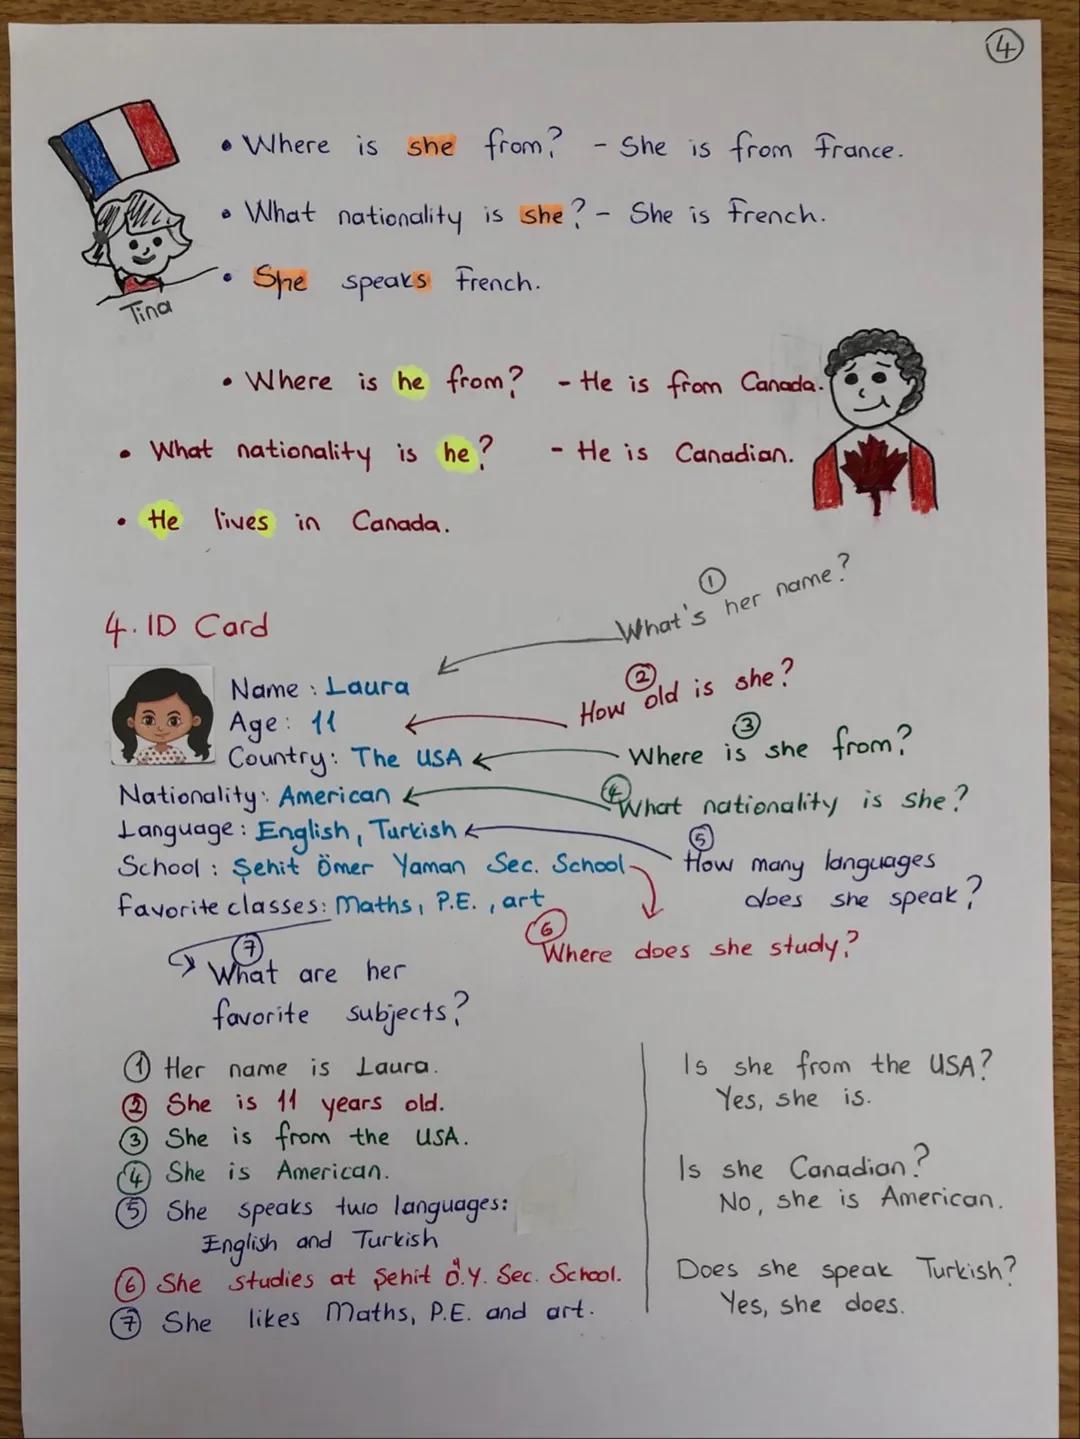 4
• Where is she from? - She is from France.
• What nationality is she? - She is French.
• She speaks French.
Tina
• Where is he from? - He is from Canada.
• What nationality is he? - He is Canadian.
• He lives in Canada.
4. ID Card
① What's her name?
Name : Laura
② How old is she?
Age : 11
③ Where is she from?
Country : The USA
④ What nationality is she?
Nationality : American
Language : English, Turkish
⑤ How many languages
does she speak?
School : Şehit Ömer Yaman Sec. School
Favorite classes : Maths, P.E., art
⑥ Where does she study?
⑦ What are her
favorite subjects?
① Her name is Laura.
② She is 11 years old.
③ She is from the USA.
④ She is American.
⑤ She speaks two languages:
English and Turkish
⑥ She studies at Şehit Ö.Y. Sec. School.
⑦ She likes Maths, P.E. and art.
Is she from the USA?
Yes, she is.
Is she Canadian?
No, she is American.
Does she speak Turkish?
Yes, she does.